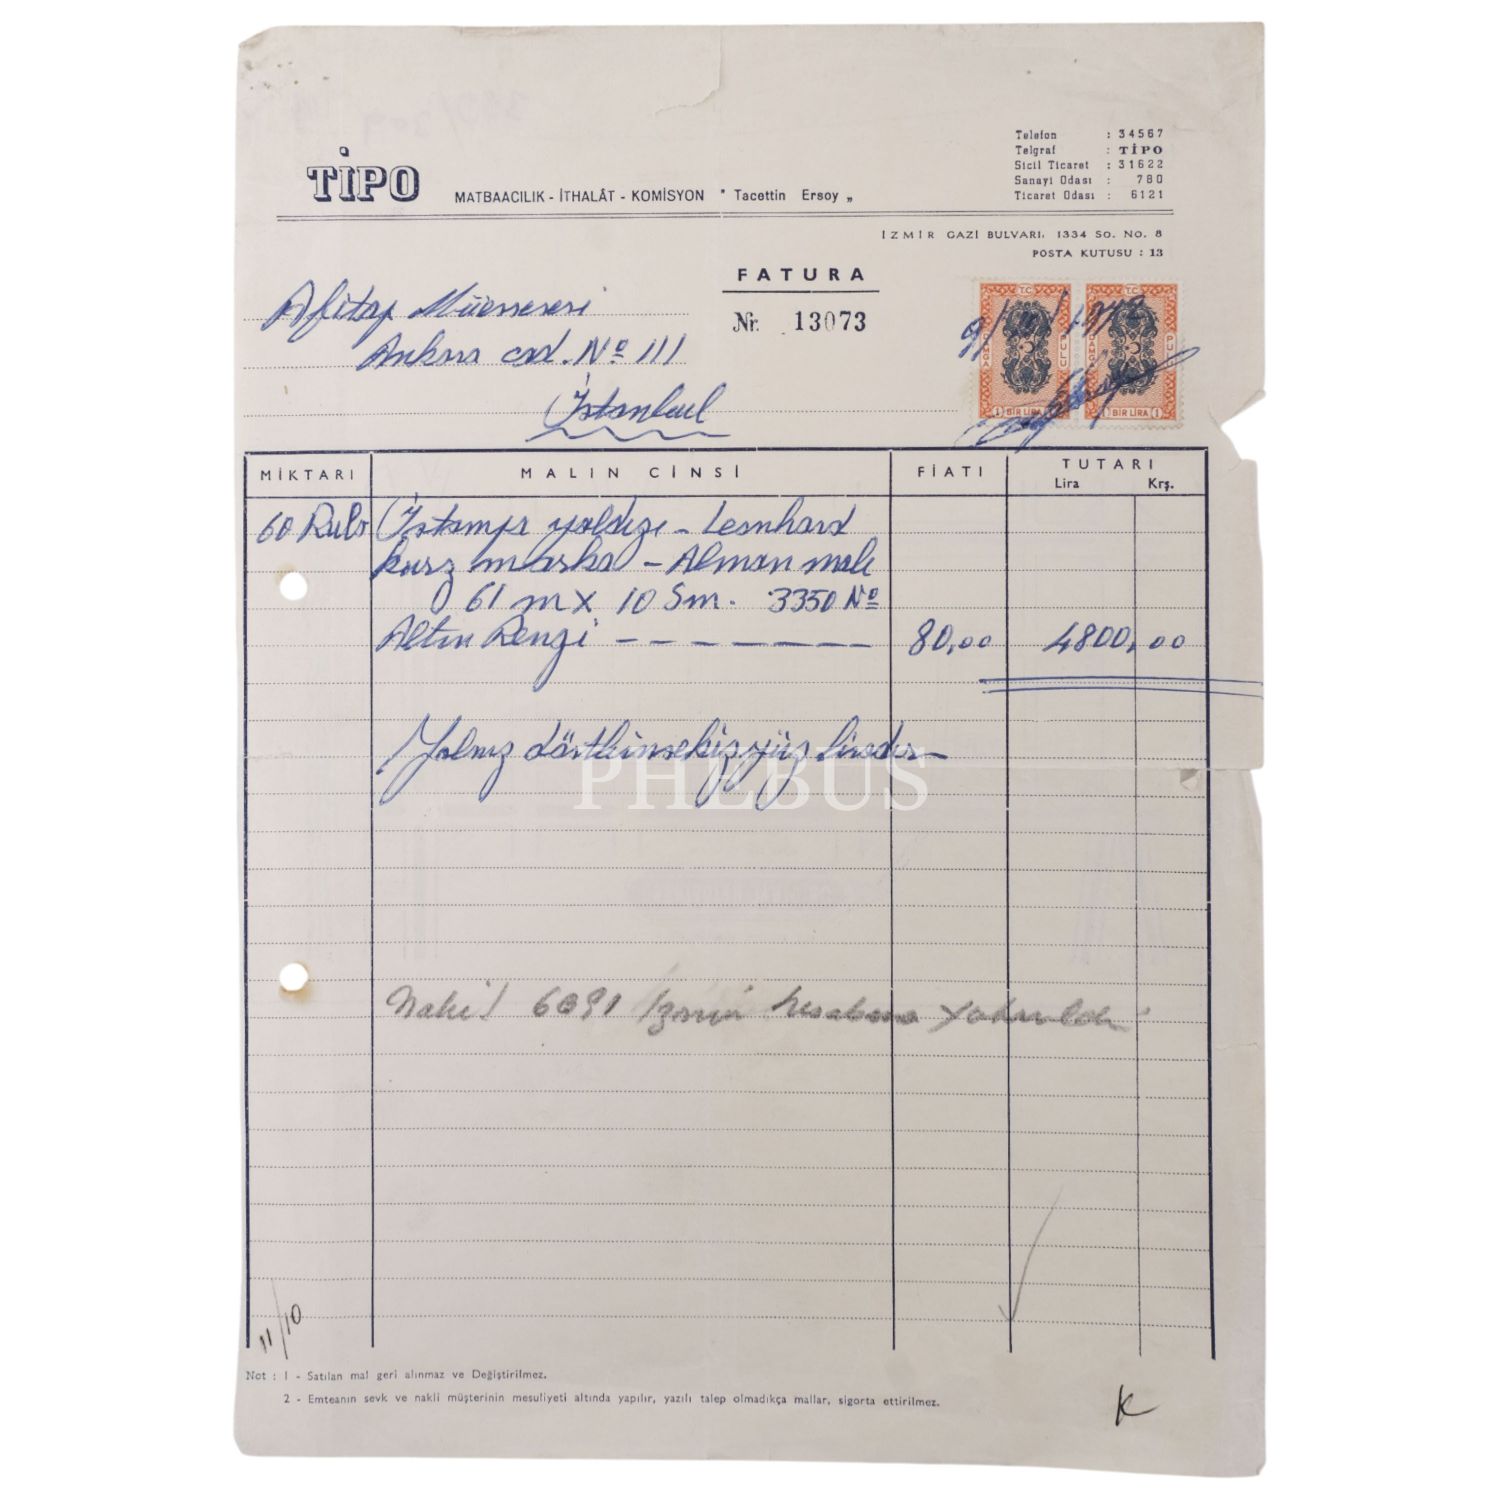 TİPO
MATBAACILIK - İTHALÂT - KOMİSYON " Tacettin Ersoy „
Telefon : 34567
Telgraf : TİPO
Sicil Ticaret : 31622
Sanayi Odası : 780
Ticaret Odası : 6121
İZMİR GAZİ BULVARI, 1334 SO. NO. 8
POSTA KUTUSU : 13
FATURA
Nr. 13073
Afitap Müessesesi
Ankara cad. No 111
İstanbul
T.C. T.C.
DAMGA PULU DAMGA PULU
1 BİR LİRA 1 1 BİR LİRA 1
9/10/1972
MİKTARI MALIN CİNSİ FİATI TUTARI
Lira Krş.
60 Rulo İstampa yaldızı - Leonhard
kurz marka - Alman malı
61 m x 10 Sm. 3350 No
Altın Rengi - - - - - - - 80,00 4800,00
Yalnız dörtbinsekizyüz liradır
PHEBUS
Nakil 6091 İzmir hesabına
11/10
Not : 1 - Satılan mal geri alınmaz ve Değiştirilmez.
2 - Emteanın sevk ve nakli müşterinin mesuliyeti altında yapılır, yazılı talep olmadıkça mallar, sigorta ettirilmez.
K